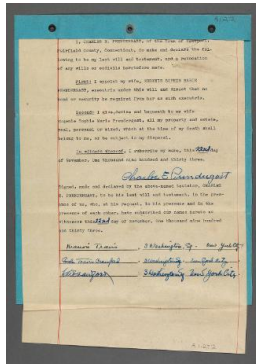 A122
I, CHARLES E. PRENDERGAST, of the Town of Westport,
Fairfield County, Connecticut, do make and declare the fol-
lowing to be my last will and testament, and a revocation
of any wills or codicils heretofore made.
First: I appoint my wife, EUGENIE SOPHIE MARIE
PRENDERGAST, executrix under this will and direct that no
bond or security be required from her as such executrix.
Second: I give, devise and bequeath to my wife
Eugenie Sophie Marie Prendergast, all my property and estate,
real, personal or mixed, which at the time of my death shall
belong to me, or be subject to my disposal.
In witness whereof, I subscribe my name, this 22nd day
of November, one thousand nine hundred and thirty three.
Charles E Prendergast
Signed, made and declared by the above-named testator, CHARLES
E. PRENDERGAST, to be his last will and testament, in the pres-
ence of us, who, at his request, in his presence and in the
presence of each other, have subscribed our names hereto as
witnesses this 22nd day of November, one thousand nine hundred
and thirty three.
Francis Travis 3 Washington Sq. New York City
Washington Sq. New York City
3 Washington Sq New York City